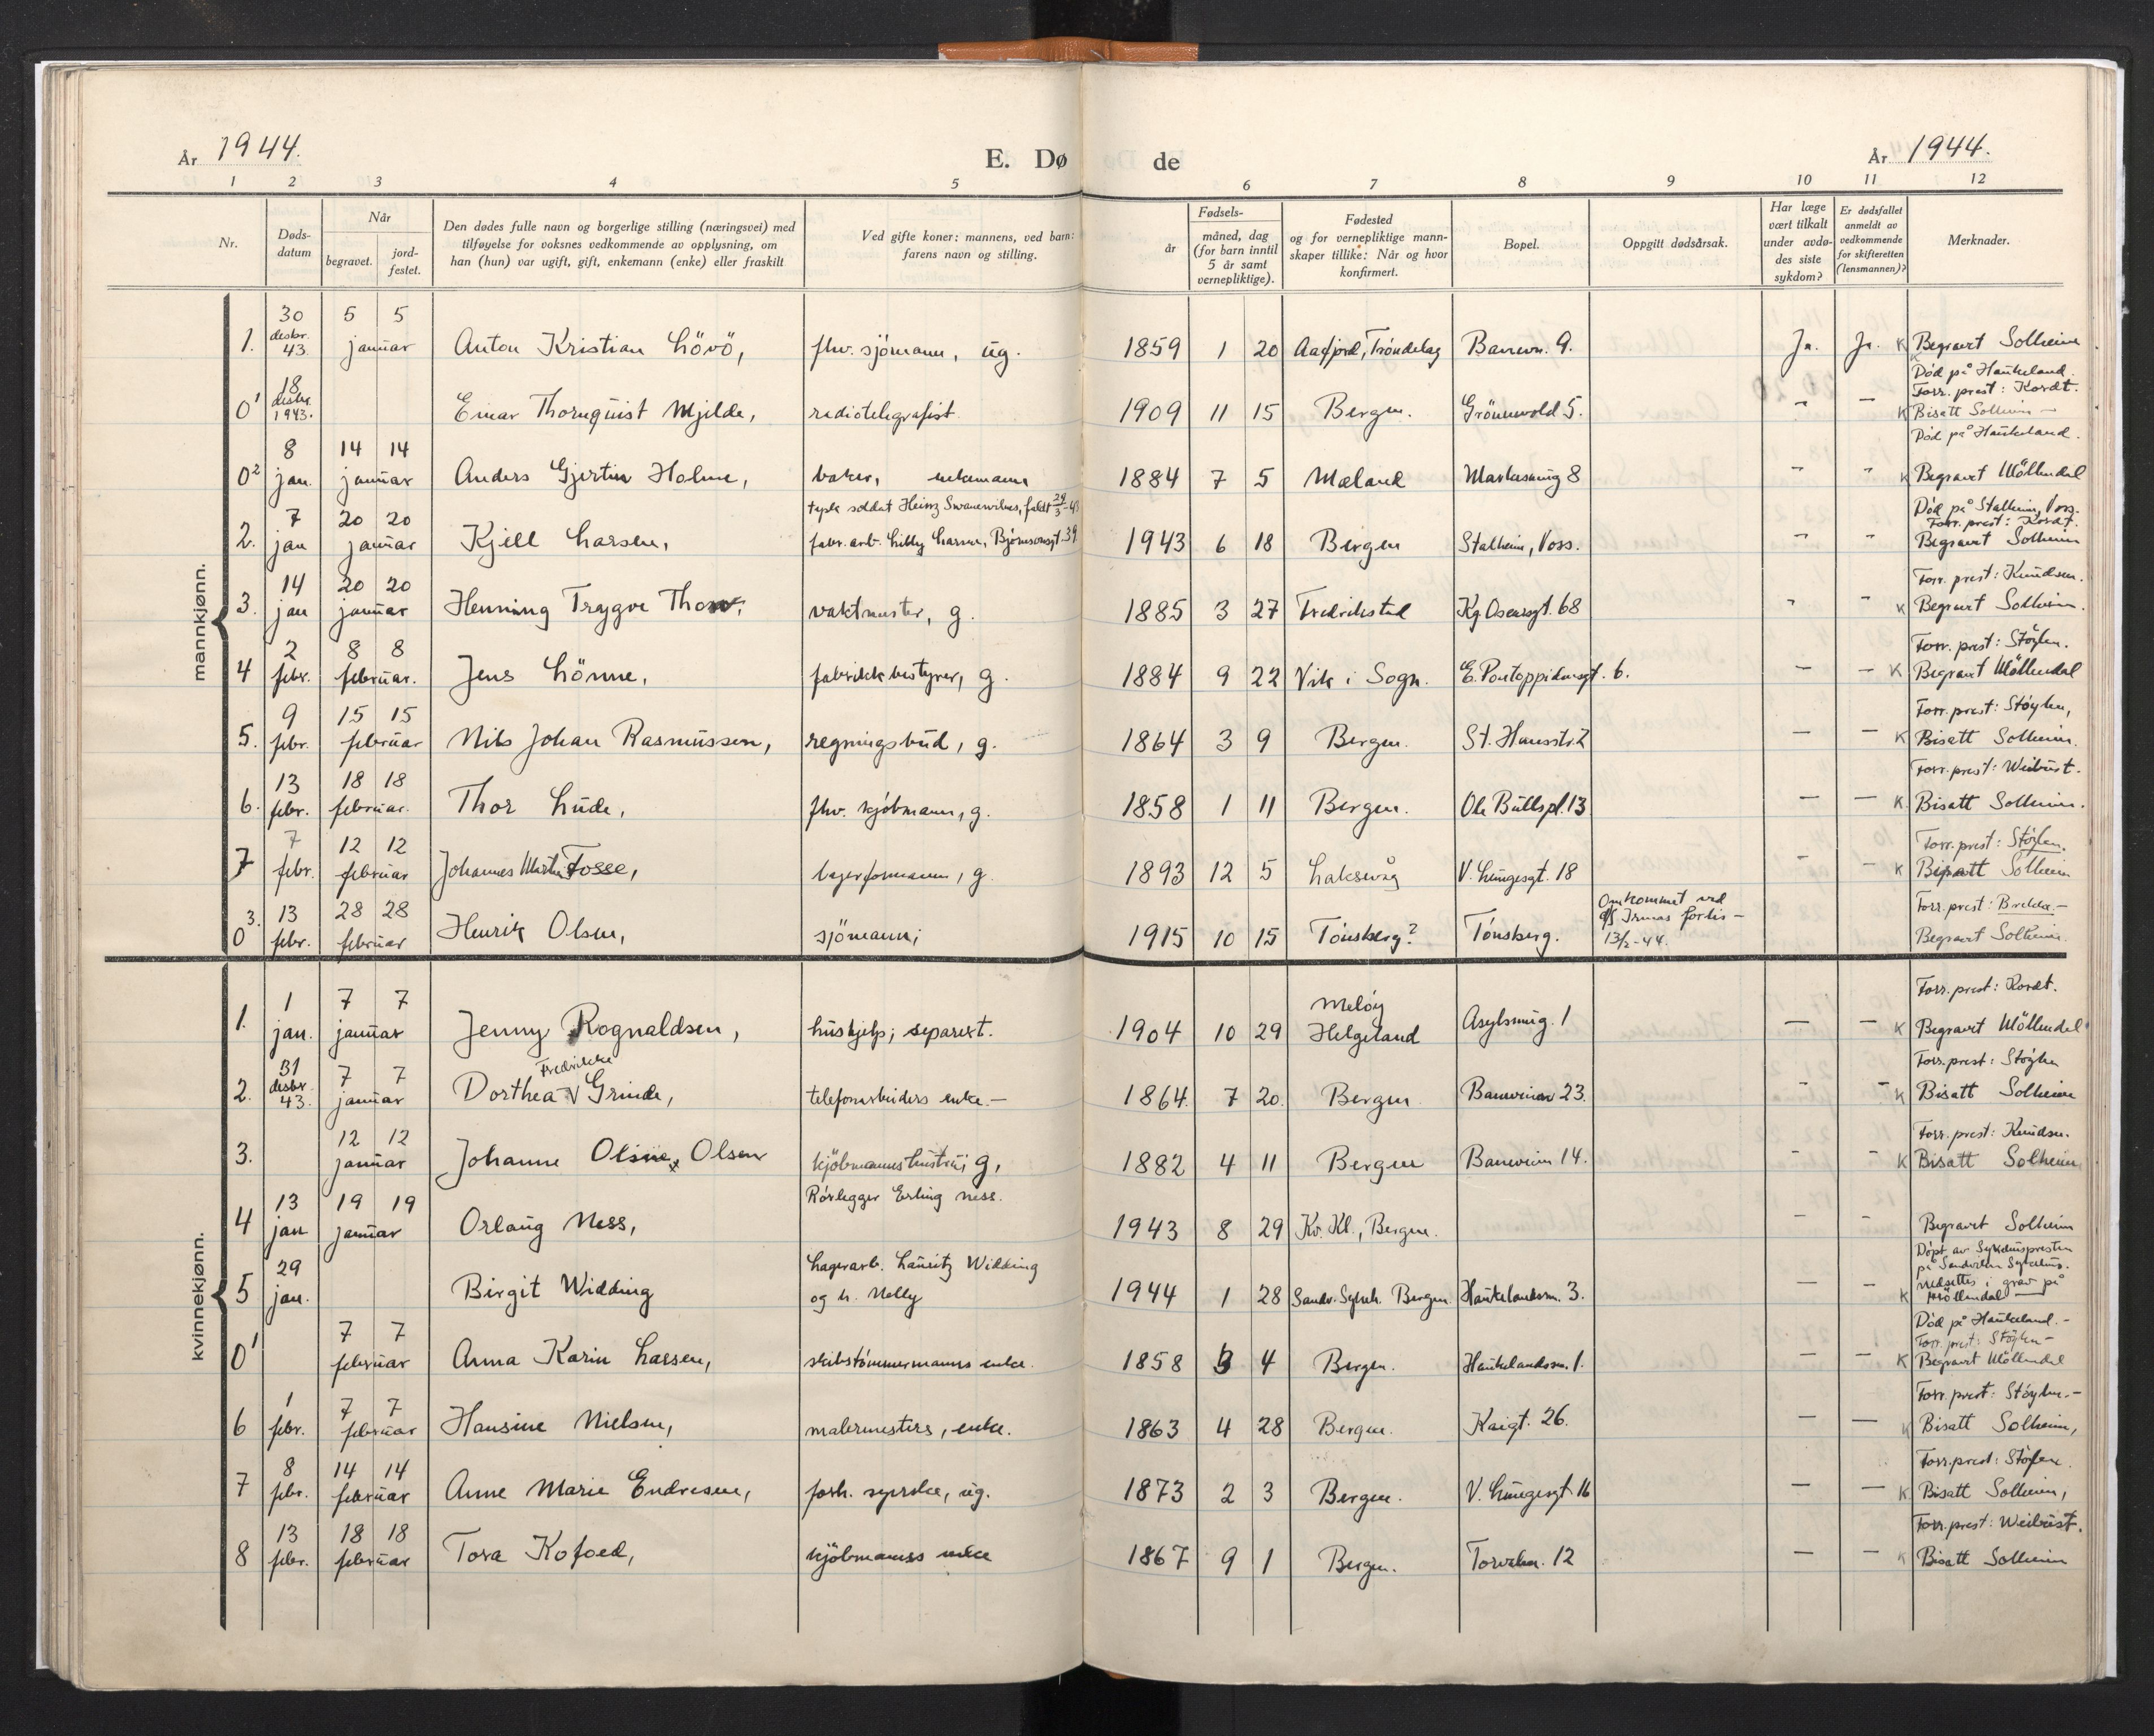 År 1944.
E. Dø de
År 1944.
1 2 3 4 5 6 7 8 9 10 11 12
Nr.
Døds-
datum
Når
begravet.
jord-
festet.
Den dødes fulle navn og borgerlige stilling (næringsvei) med
tilføyelse for voksnes vedkommende av opplysning, om
han (hun) var ugift, gift, enkemann (enke) eller fraskilt
Ved gifte koner: mannens, ved barn:
farens navn og stilling.
Fødsels-
år
måned, dag
(for barn inntil
5 år samt
vernepliktige).
Fødested
og for vernepliktige mann-
skaper tillike: Når og hvor
konfirmert.
Bopel.
Oppgitt dødsårsak.
Har læge
vært tilkalt
under avdø-
des siste
sykdom?
Er dødsfallet
anmeldt av
vedkommende
for skifteretten
(lensmannen)?
Merknader.
mannkjønn.
30 5 5
1. desbr. 43. januar Anton Kristian Lövö, fhv. sjömann, ug. 1859 1 20 Aafjord, Tröndelag 9. Ja. Ja. K Begravet Solheim
Död på Haukeland.
18 Forr. prest: Kordt.
0¹ desbr. 1943. Einar Thornquist Mjelde, radiotelegrafist. 1909 11 15 Bergen. Grönnevold 5. " — K Bisatt Solheim —
Död på Haukeland.
8 14 14
0² jan. januar Anders Gjertin Holme, baker, enkemann 1884 7 5 Mæland 8 " " K Begravet Möllendal
tysk soldat Heinz faldt 29/3-43 Död på Stalheim, Voss.
7 20 20 Forr. prest: Kordt.
2. jan januar Kjell Larsen, fabr. arb. Lilly Larsen, Björnsonsgt. 39 1943 6 18 Bergen Stalheim, Voss. " " Begravet Solheim
14 20 20 Forr. prest: Knudsen.
3. jan januar Henning Trygve Thow, vaktmester, g. 1885 3 27 Fredrikstad Kg. Oscarsgt. 68 " — K Begravet Solheim.
2 8 8 Forr. prest: Stöylen.
4 febr. februar. Jens Lönne, fabrikkbestyrer, g. 1884 9 22 Vik i Sogn. E. Pontoppidansgt. 6. — — K Begravet Möllendal
9 15 15 Forr. prest: Stöylen,
5. febr. februar Nils Johan Rasmussen, regningsbud, g. 1864 3 9 Bergen. St. Hansstr. 2 — — K Bisatt Solheim.
13 18 18 Forr. prest: Weibust.
6. febr. februar. Thor Lude, fhv. kjöbmann, g. 1858 1 11 Bergen. Ole Bullspl. 13 — — K. Bisatt Solheim.
7 12 12 Forr. prest: Stöylen.
7 febr. februar Johannes Martin Fosse, lagerformann, g. 1893 12 5 Laksevåg V. Lungesgt. 18 — — K Bisatt Solheim
13 28 28 Omkommet ved Forr. prest: Bredda. —
d/s Irmas forlis —
0³. febr. februar Henrik Olsen, sjömann; 1915 10 15 Tönsberg? Tönsberg. 13/2-44. Begravet Solheim.
kvinnekjønn.
1 7 7 Melöy Forr. prest: Kordt.
1. jan. januar Jenny Rognaldsen, hushjelp; separert. 1904 10 29 Helgeland Asylsmug. 1 — — K Begravet Möllendal
31 7 7 Fredrikke Forr. prest: Stöylen
2. desbr. 43. januar Dorthea V Grinde, telefonarbeiders enke. — 1864. 7 20. Bergen 23. — — K Bisatt Solheim
12 12 Forr. prest: Knudsen.
3. januar Johanne Olsine, Olsen kjöbmannshustru; g, 1882 4 11 Bergen 14. — — K Bisatt Solheim
13 19 19 Rörlegger Erling Ness.
4 jan januar Orlaug Ness, 1943 8 29 Kv. Kl., Bergen. — — Begravet Solheim
29 Lagerarb. Lauritz Widding Döpt av Sykehuspresten
på Sandviken Sykehus.
5 jan. Birgit Widding og h. Nelly 1944 1 28 Sandv. Sykeh. Bergen. Haukelandsv. 3. — — K nedsettes i grav på
Möllendal —
7 7 Död på Haukeland. —
Forr. prest: Stöylen —
0¹ februar Anna Karin Larsen, skibstömmermanns enke. 1858 3 4 Bergen. Haukelandsv. 1. — — K Begravet Möllendal
1 7 7 Forr. prest: Stöylen. —
6 febr. februar Hansine Nielsen, malermesters, enke. 1863 4 28 Bergen. Kaigt. 26. — — K Bisatt Solheim,
8 14 14 Forr. prest: Stöylen.
7 febr. februar Anne Marie Endresen, forh. syerske, ug. 1873 2 3 Bergen. V. Lungesgt. 16 — — K Bisatt Solheim,
13 18 18 Forr. prest: Weibust.
8 febr. februar Tora Kofoed, kjöbmanns enke 1867 9 1 Bergen. 12 — — K Bisatt Solheim